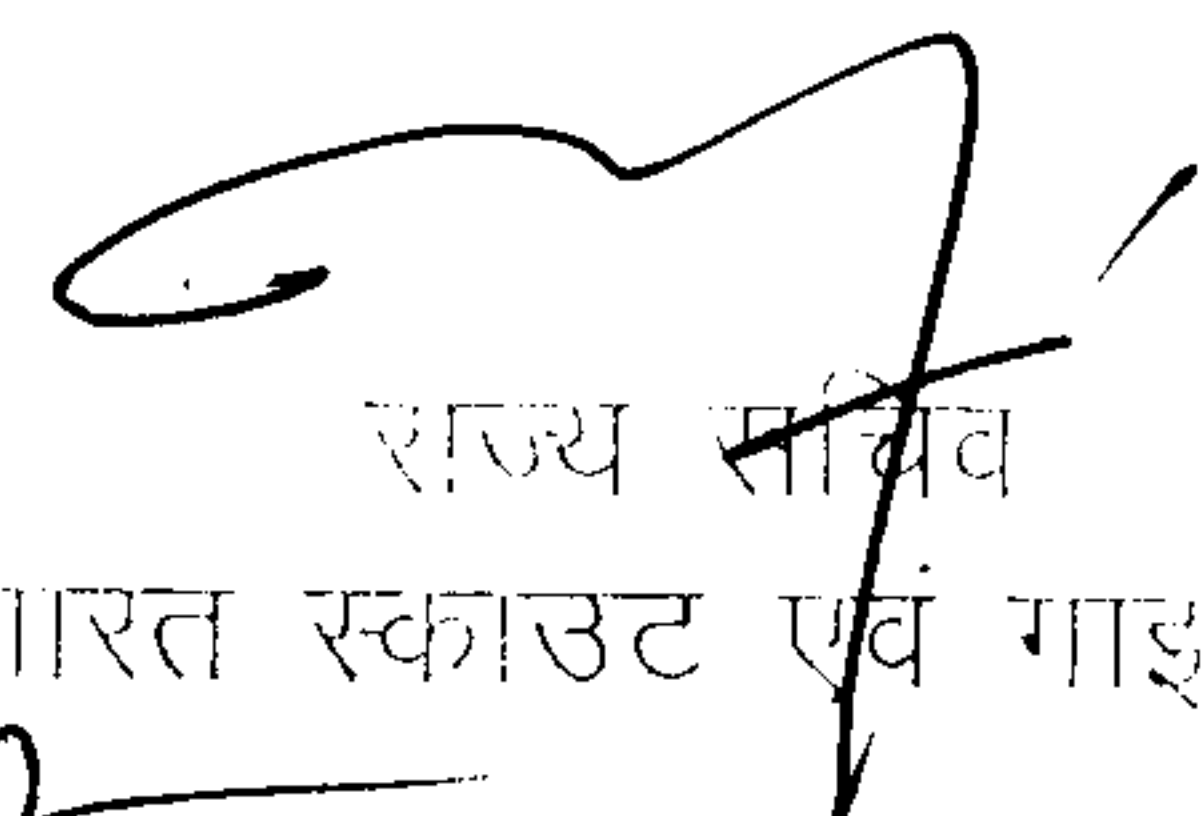 राज्य सचिव
भारत स्काउट एवं गाइ